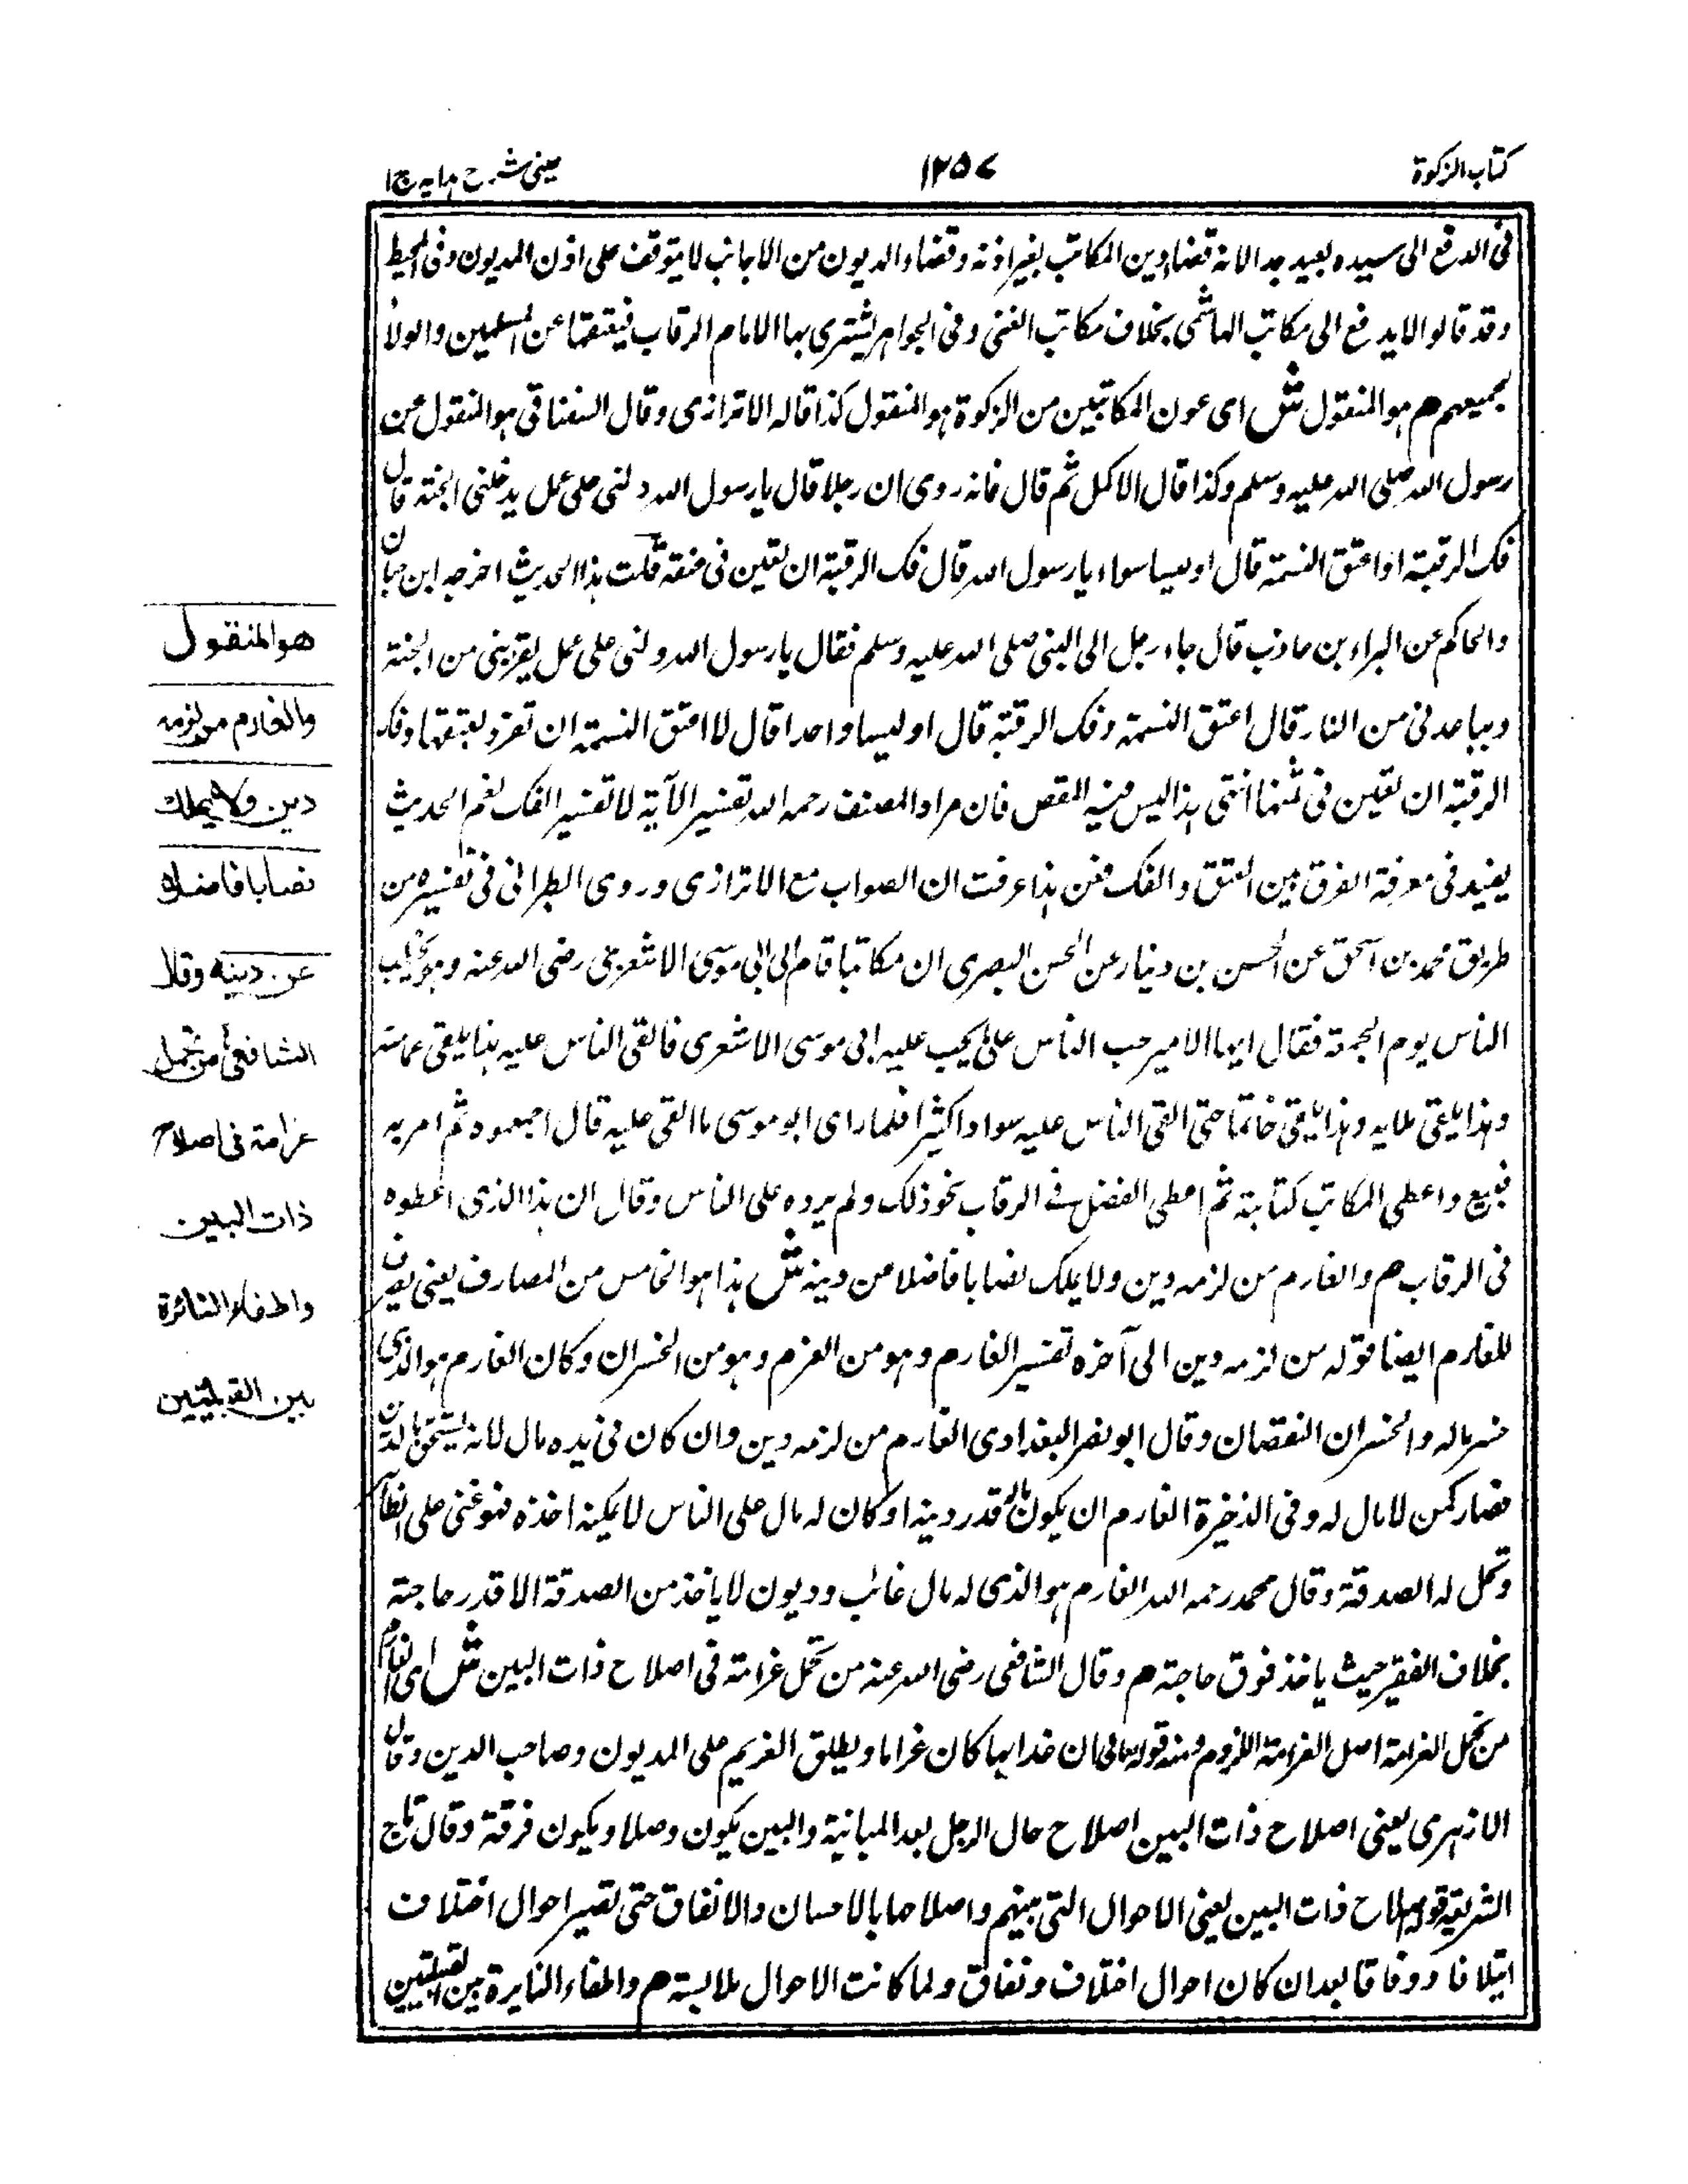 كتاب الزكوة
١٢٥٧
عينى شرح هدايه ج١
فى الدفع الى سيده بعيد جدا لانه قضاء دين المكاتب بغير اذنه وقضاء الديون من الاجانب لا يتوقف على اذن المديون وفى المحيط
وقد قالوا لا يدفع الى مكاتب الهاشمى بخلاف مكاتب الغنى وفى الجواهر يشترى بها الامام الرقاب فيعتقها عن المسلمين والولاء
لجميعهم م هو المنقول ش اى عون المكاتبين من الزكوة هو المنقول كذا قاله الاترازى وقال السغناقى هو المنقول عن
رسول الله صلى الله عليه وسلم وكذا قال الاكمل ثم قال فانه روى ان رجلا قال يا رسول الله دلنى على عمل يدخلنى الجنة قال
فك الرقبة او اعتق النسمة قال او ليسا سواء يا رسول الله قال فك الرقبة ان تعين فى عتقه قلت هذا الحديث اخرجه ابن حبان
والحاكم عن البراء بن عازب قال جاء رجل الى النبى صلى الله عليه وسلم فقال يا رسول الله دلنى على عمل يقربنى من الجنة
ويباعدنى من النار قال اعتق النسمة وفك الرقبة قال او ليسا واحدا قال لا اعتق النسمة ان تفرد بعتقها وفك
الرقبة ان تعين فى ثمنها انتهى هذا ليس فيه المقص فان مراد المصنف رحمه الله تفسير الآية لا تفسير الفك نعم الحديث
يفيد فى معرفة الفرق بين العتق والفك فمن هذا عرفت ان الصواب مع الاترازى وروى الطبرانى فى تفسيره من
طريق محمد بن اسحق عن الحسن بن دينار عن الحسن البصرى ان مكاتبا قام الى ابى موسى الاشعرى رضى الله عنه وهو يخطب
الناس يوم الجمعة فقال ايها الامير حب الناس على يحب عليه ابى موسى الاشعرى فالقى الناس عليه هذا يلقى عمامته
وهذا يلقى ملايه وهذا يلقى خاتما حتى القى الناس عليه سوادا كثيرا فلما راى ابو موسى ما القى عليه قال اجمعوه ثم امر به
فبيع واعطى المكاتب كتابته ثم اعطى الفضل فى الرقاب نحو ذلك ولم يرده على الناس وقال ان هذا الذى اعطوه
فى الرقاب م والغارم من لزمه دين ولا يملك نصابا فاضلا من دينه ش هذا هو الخامس من المصارف يعنى يصرف
للغارم ايضا قوله من لزمه دين الى آخره تفسير الغارم وهو من الغرم وهو من الخسران وكان الغارم هو الذى
خسر ماله والخسران النقصان وقال ابو نصر البغدادى الغارم من لزمه دين وان كان فى يده مال لانه يستحق بالدين
فصار كمن لا مال له وفى الذخيرة الغارم ان يكون ماله قدر دينه او كان له مال على الناس لا يمكنه اخذه فهو غنى على الظاهر
وتحل له الصدقة وقال محمد رحمه الله الغارم هو الذى له مال غائب وديون لا ياخذ من الصدقة الا قدر حاجته
بخلاف الفقير حيث ياخذ فوق حاجته م وقال الشافعى رضى الله عنه من تحمل غرامة فى اصلاح ذات البين ش اى الغارم
من تحمل الغرامة اصل الغرامة اللزوم ومنه قوله تعالى ان عذابها كان غراما ويطلق الغريم على المديون وصاحب الدين وقال
الازهرى يعنى اصلاح ذات البين اصلاح حال الرجل بعد المباينة والبين يكون وصلا ويكون فرقة وقال تاج
الشريعة قوله اصلاح ذات البين يعنى الاحوال التى بينهم واصلاحها بالاحسان والانفاق حتى تصير احوال اختلاف
ايتلافا ووفاقا بعد ان كان احوال اختلاف ونفاق ولما كانت الاحوال ملابسة م واطفاء النايرة بين القبيلتين
هو المنقول
والغارم من لزمه
دين ولا يملك
نصابا فاضلا
عن دينه وقال
الشافعى من تحمل
غرامة فى اصلاح
ذات البين
واطفاء النائرة
بين القبيلتين